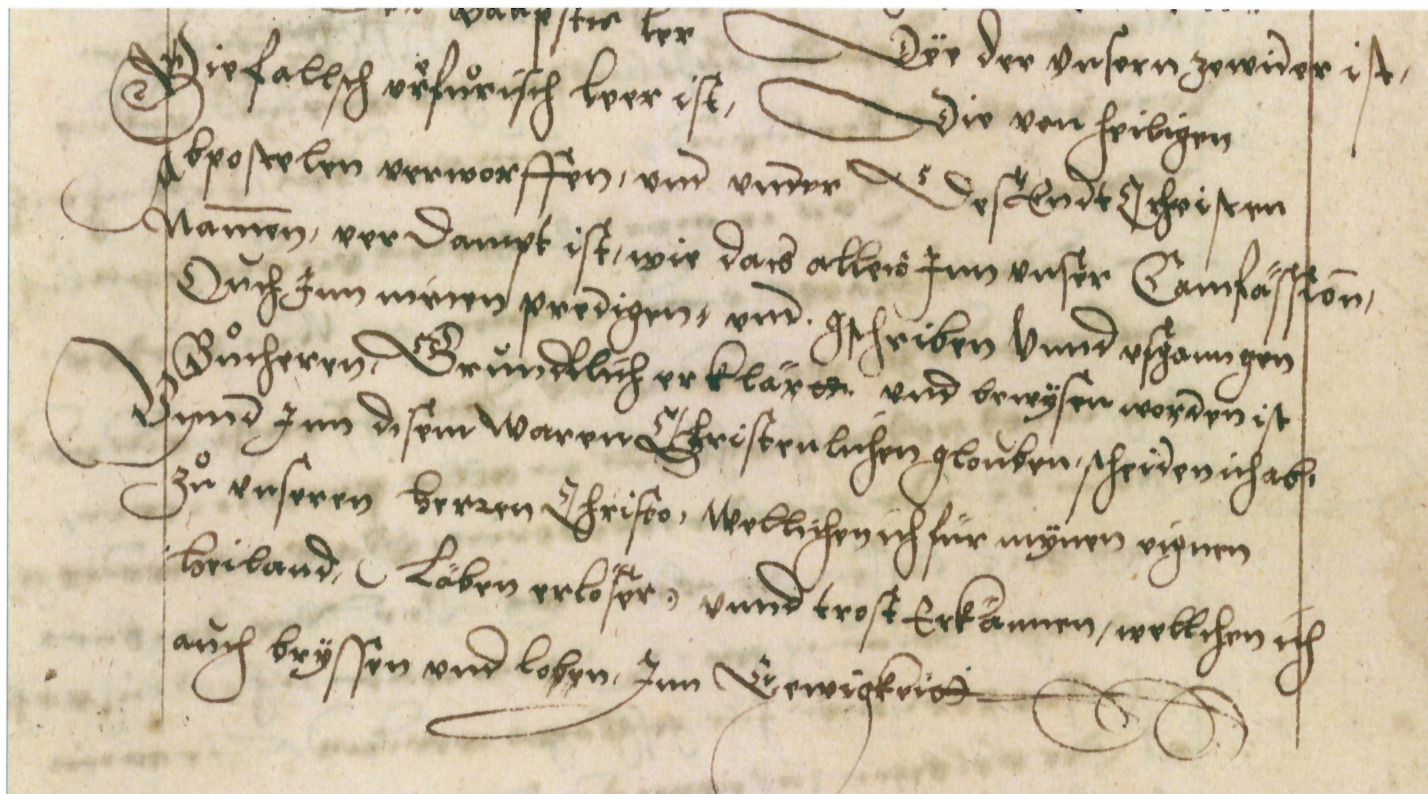 baapstes ler Dÿe der vnsern zewider ist,
Die fallsch verfuͦrisch leer ist, Die von heiligen
Abpostelen verworffen, vnd vnder Des Endt Christen
Namen, verdampt ist, wie das alles Inn vnser Camfässion,
Ouch Inn minen predigen, vnd. gschriben Vnnd vsganngen
Buͦcheren, Gruͦndtlich erklärtt. vnd bewysen worden ist
Vnnd Inn disem waren Christenlichen glouben, scheiden ich ab,
zuͦ vnseren herren Christo, Wellichen ich für mynen eignen
heiland, Läben erloser, vnnd trost Erkännen, wellichen ich
auch bryssen vnd loben, Inn Eewigkeitt